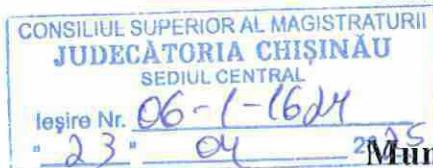 CONSILIUL SUPERIOR AL MAGISTRATURII
JUDECĂTORIA CHIȘINĂU
SEDIUL CENTRAL
Ieșire Nr. 06-1-1624
"23" 04 2025
Mun